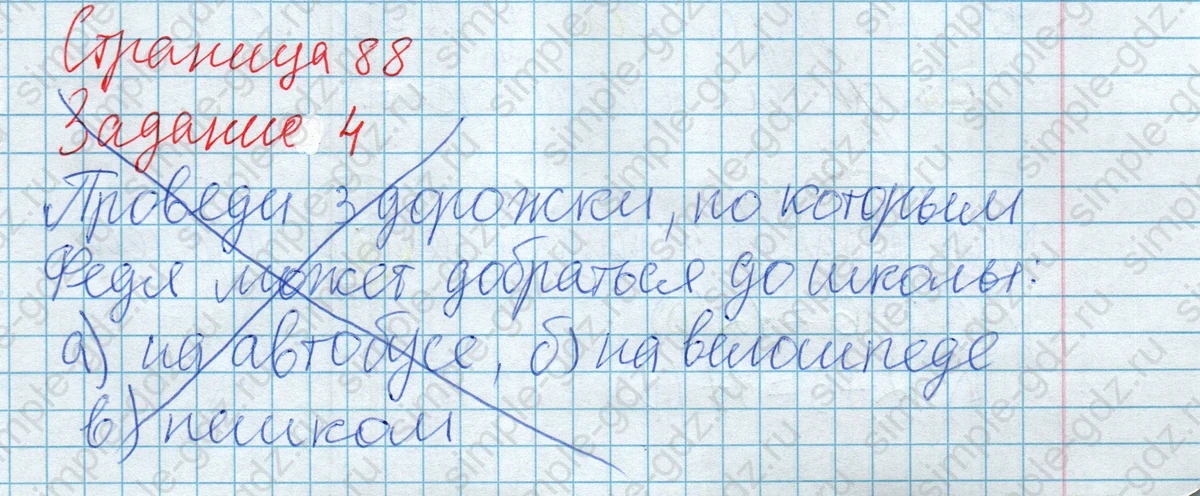 Страница 88
Задание 4
Проведи 3 дорожки, по которым
Федя может добраться до школы:
а) на автобусе, б) на велосипеде
в) пешком
simple-gdz.ru